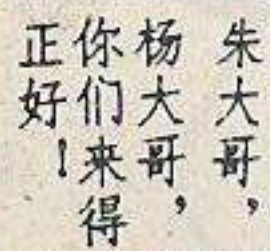 朱大哥，
杨大哥，
你们来得
正好！